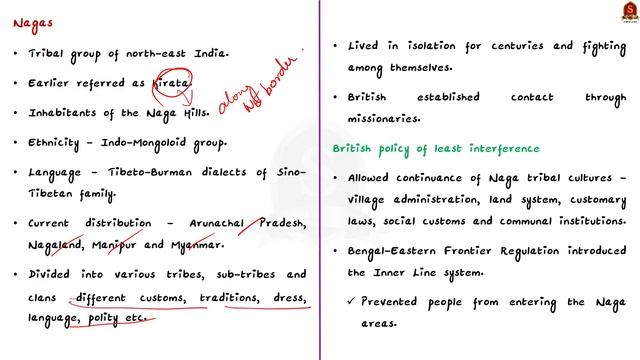 Nagas
• Tribal group of north-east India.
• Earlier referred as Kirata.
• Inhabitants of the Naga Hills.
along
border
• Ethnicity – Indo-Mongoloid group.
• Language – Tibeto-Burman dialects of Sino-
Tibetan family.
• Current distribution – Arunachal Pradesh,
Nagaland, Manipur and Myanmar.
• Divided into various tribes, sub-tribes and
clans different customs, traditions, dress,
language, polity etc.
• Lived in isolation for centuries and fighting
among themselves.
• British established contact through
missionaries.
British policy of least interference
• Allowed continuance of Naga tribal cultures –
village administration, land system, customary
laws, social customs and communal institutions.
• Bengal-Eastern Frontier Regulation introduced
the Inner Line system.
✓ Prevented people from entering the Naga
areas.